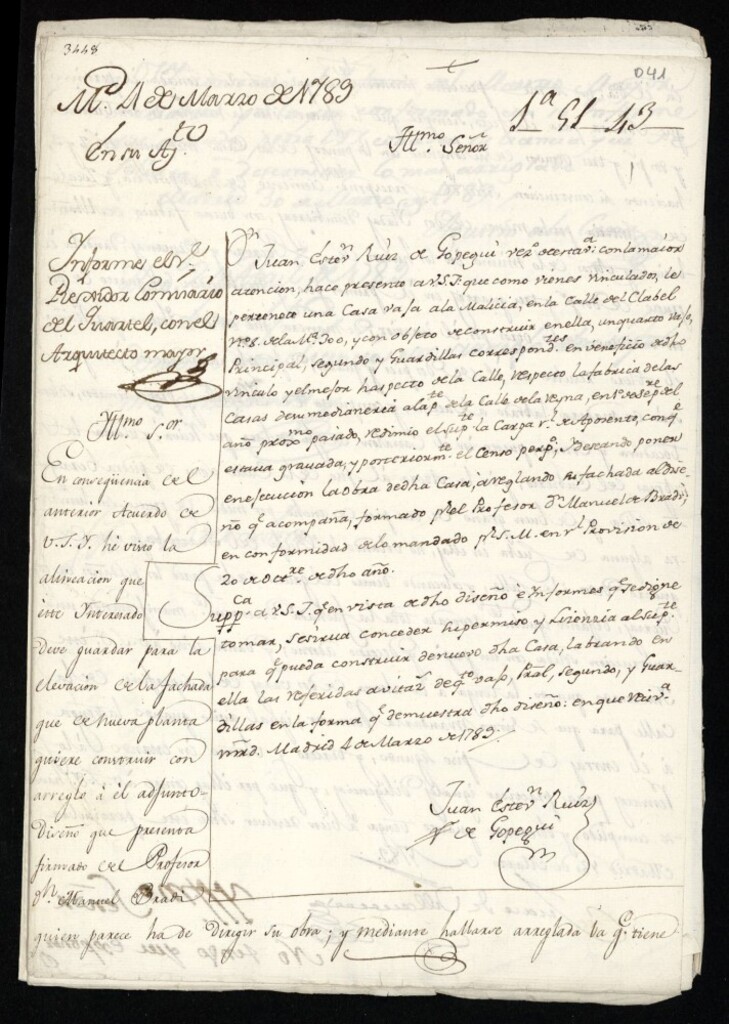 3448
041
M.d 4 de Marzo de 1789
1ª 51 43
En su Ay.to
Yll.mo Señor
Informe el s.r
Rexidor Comisario
del Quartel, con el
Arquitecto mayor
D.n Juan Estev.n Ruiz de Gopegui vez.o de esta v.a: con la maior
atencion, hace presente a V.S.Y. que como vienes vinculados, le
pertenece una Casa vaja a la Malicia, en la Calle del Clabel
n.o 8. de la M.a 300, y con objeto de construir en ella, un quarto vajo,
Principal, segundo y Guardillas correspond.tes en veneficio de dho
vinculo y el mejor haspecto de la Calle, respecto la fabrica de las
Casas de su medianeria a la p.te de la Calle de la reyna, en 1.o de Sep.re del
año prox.mo pasado, redimio el sup.te la Carga r.l de Aposento, con q.e
estava gravada, y posteriorm.te el Censo perp.o; y Deseando poner
en ejecucion la obra de dha Casa, arreglando su fachada al Dise-
ño q.e acompaña, formado p.r el Profesor D.n Manuel de Bradi,
en conformidad de lo mandado p.r S.M. en r.l Provision de
20 de Oct.re de dho año.
Supp.ca a V.S.Y. q.e en vista de dho diseño e Informes q.e se digne
tomar, se sirva conceder su permiso y Lizenzia al sup.te
para q.e pueda construir de nuevo dha Casa, labrando en
ella las referidas avitaz.s de q.to vajo, Pral, segundo, y Guar-
dillas en la forma q.e demuestra dho diseño: en que reiv.a
mrd. Madrid 4 de Marzo de 1789.
Juan Estev.n Ruiz
de Gopegui
Yll.mo S.or
En conseqüencia del
anterior Acuerdo de
V.S.Y. he visto la
alineacion que
este Interesado
debe guardar para la
elevacion de la fachada
que de nueva planta
quiere construir con
arreglo à el adjunto
Diseño que presenta
firmado de el Profesor
d.n Manuel Bradi
quien parece ha de dirigir su obra; y mediante hallarse arreglada la q.e tiene